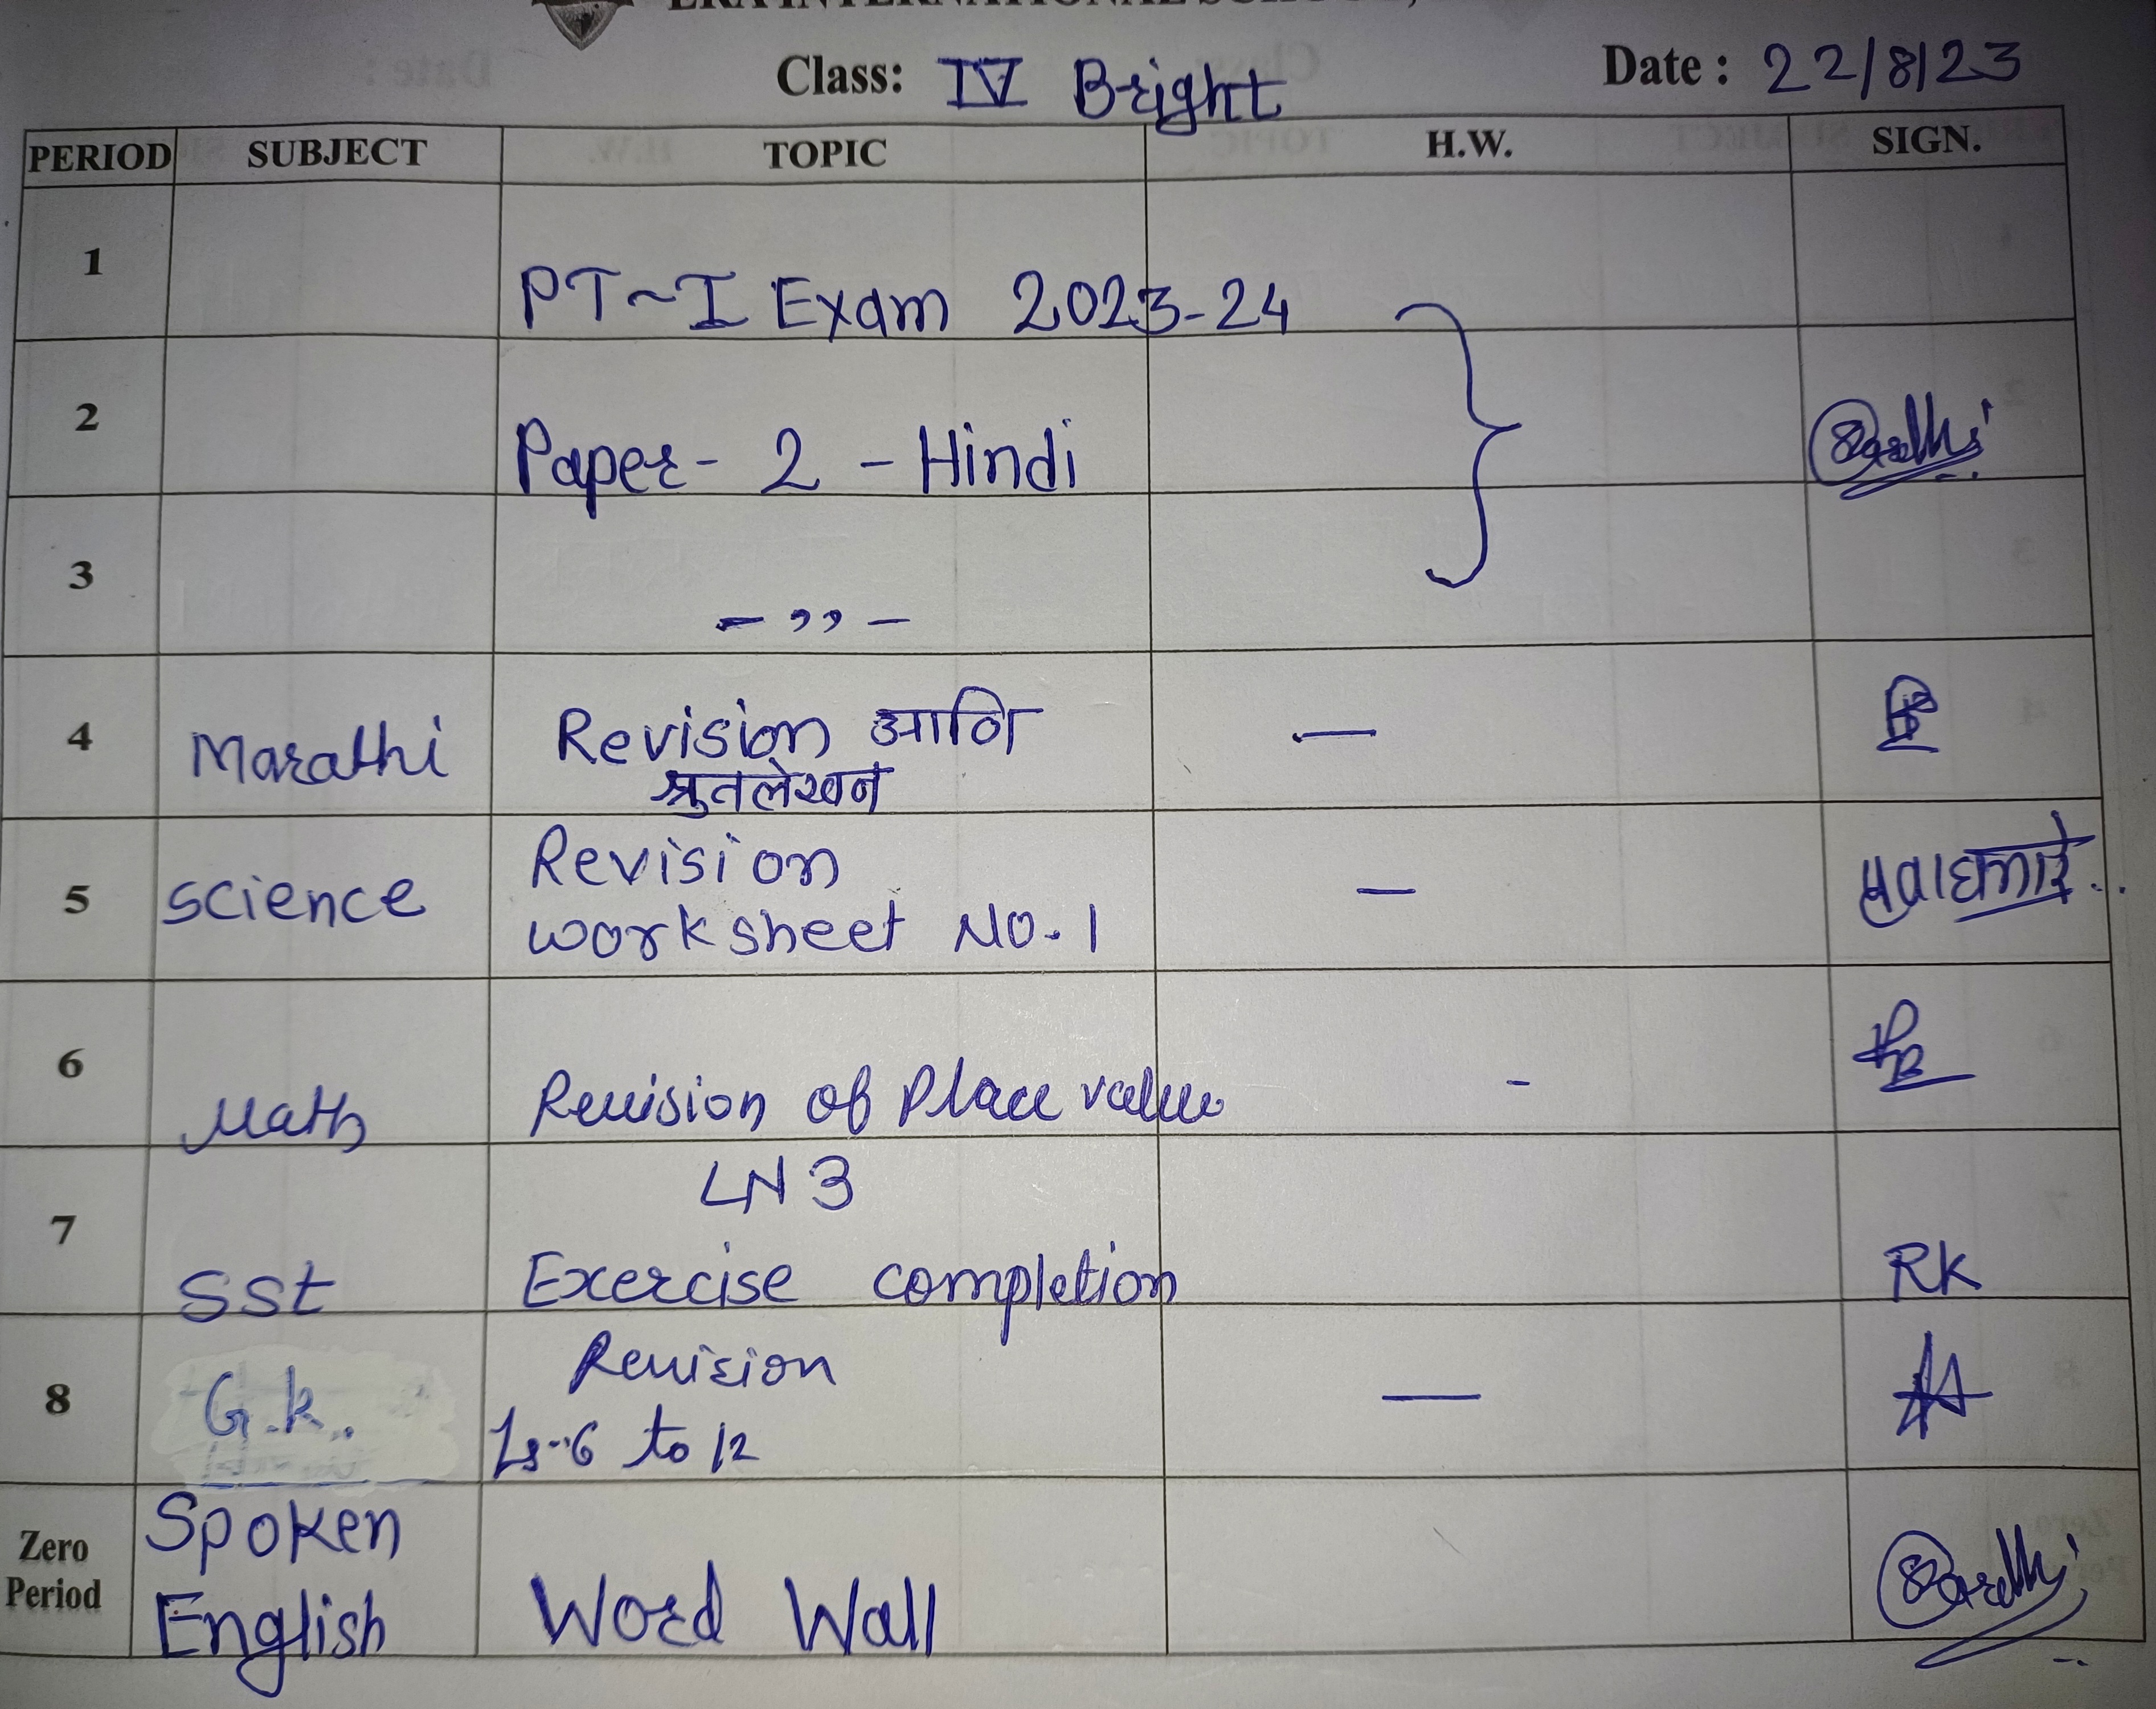 ERA INTERNATIONAL SCHOOL,
Class: IV Bright
Date: 22/8/23
PERIOD SUBJECT TOPIC H.W. SIGN.
1 PT~I Exam 2023-24
2 Paper- 2 - Hindi
3 - ,, -
4 Marathi Revision आणि —
श्रुतलेखन
5 Science Revision —
worksheet No. 1
6 Math Revision of Place value -
7 LN 3
SSt Exercise completion RK
8 G.k. Revision —
Ls-6 to 12
Zero Period Spoken
English Word Wall